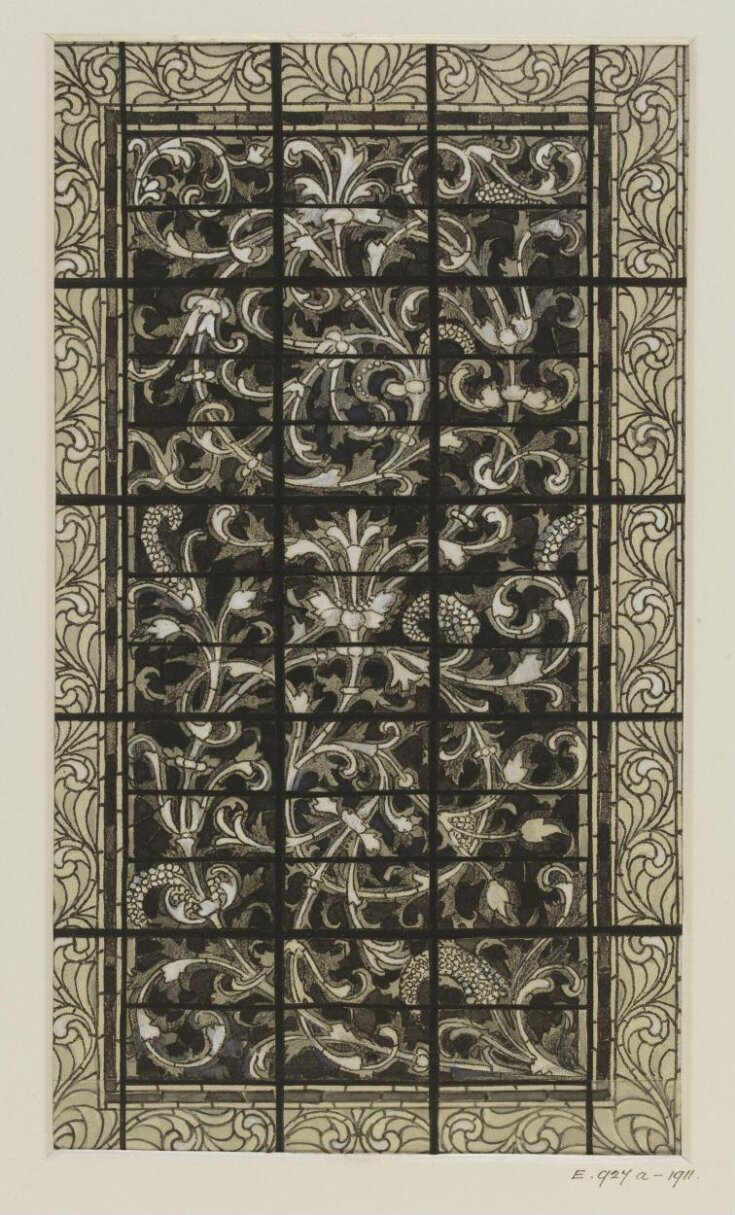 E. 927 a - 1911.